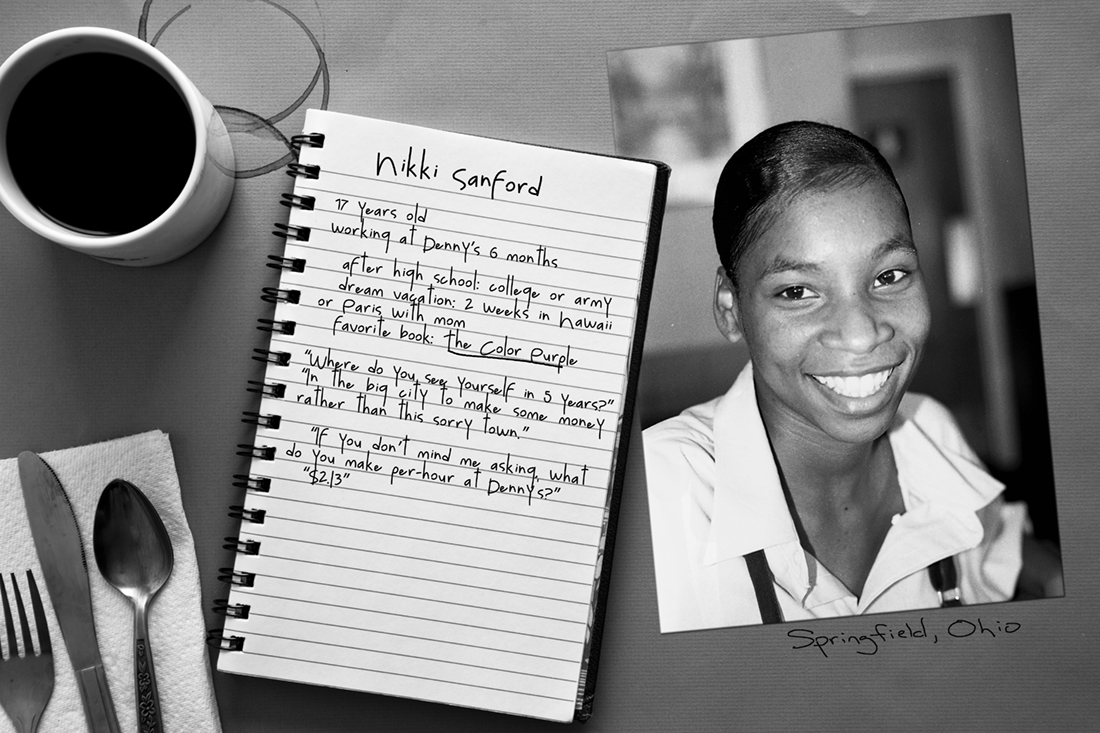 Nikki Sanford
17 years old
working at Denny's 6 months
after high school: college or army
dream vacation: 2 weeks in hawaii
or Paris with mom
favorite book: The Color Purple
"Where do you see yourself in 5 years?"
"In the big city to make some money
rather than this sorry town."
"If you don't mind me asking, what
do you make per-hour at Denny's?"
"$2.13"
Springfield, Ohio